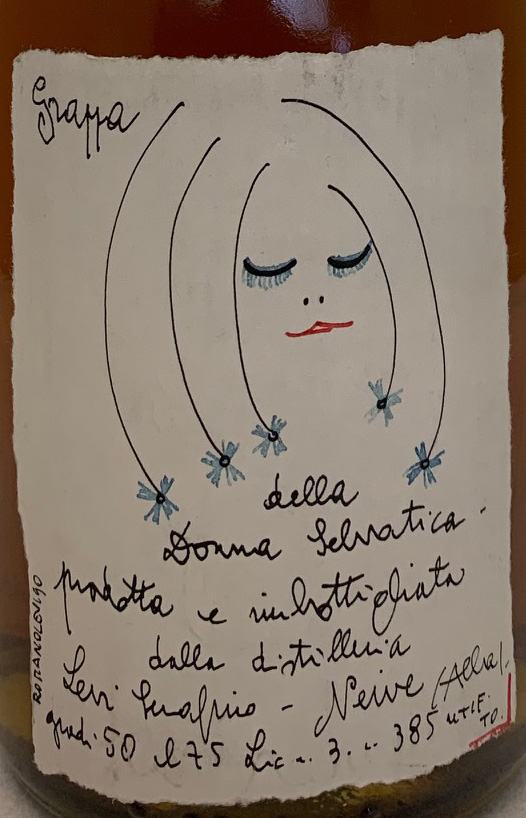 Grappa
della
Donna Selvatica -
prodotta e imbottigliata
dalla distilleria
Levi Serafino - Neive (Alba).
gradi 50 l 75 Lic n. 3. 385 UTIF. TO.
ROMANOLEVI90